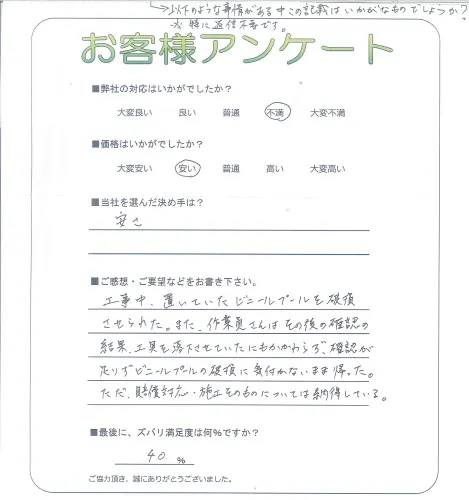 →以下のような事情がある中この記載はいかがなものでしょうか?
※特に返信不要です。
お客様アンケート
■弊社の対応はいかがでしたか?
大変良い 良い 普通 不満 大変不満
■価格はいかがでしたか?
大変安い 安い 普通 高い 大変高い
■当社を選んだ決め手は?
安さ
■ご感想・ご要望などをお書き下さい。
工事中、置いていたビニールプールを破損
させられた。また、作業員さんはその後の確認の
結果、工具を落下させていたにもかかわらず、確認が
足りずビニールプールの破損に気付かないまま帰った。
ただ、賠償対応・施工そのものについては納得している。
■最後に、ズバリ満足度は何%ですか?
40 %
ご協力頂き、誠にありがとうございました。